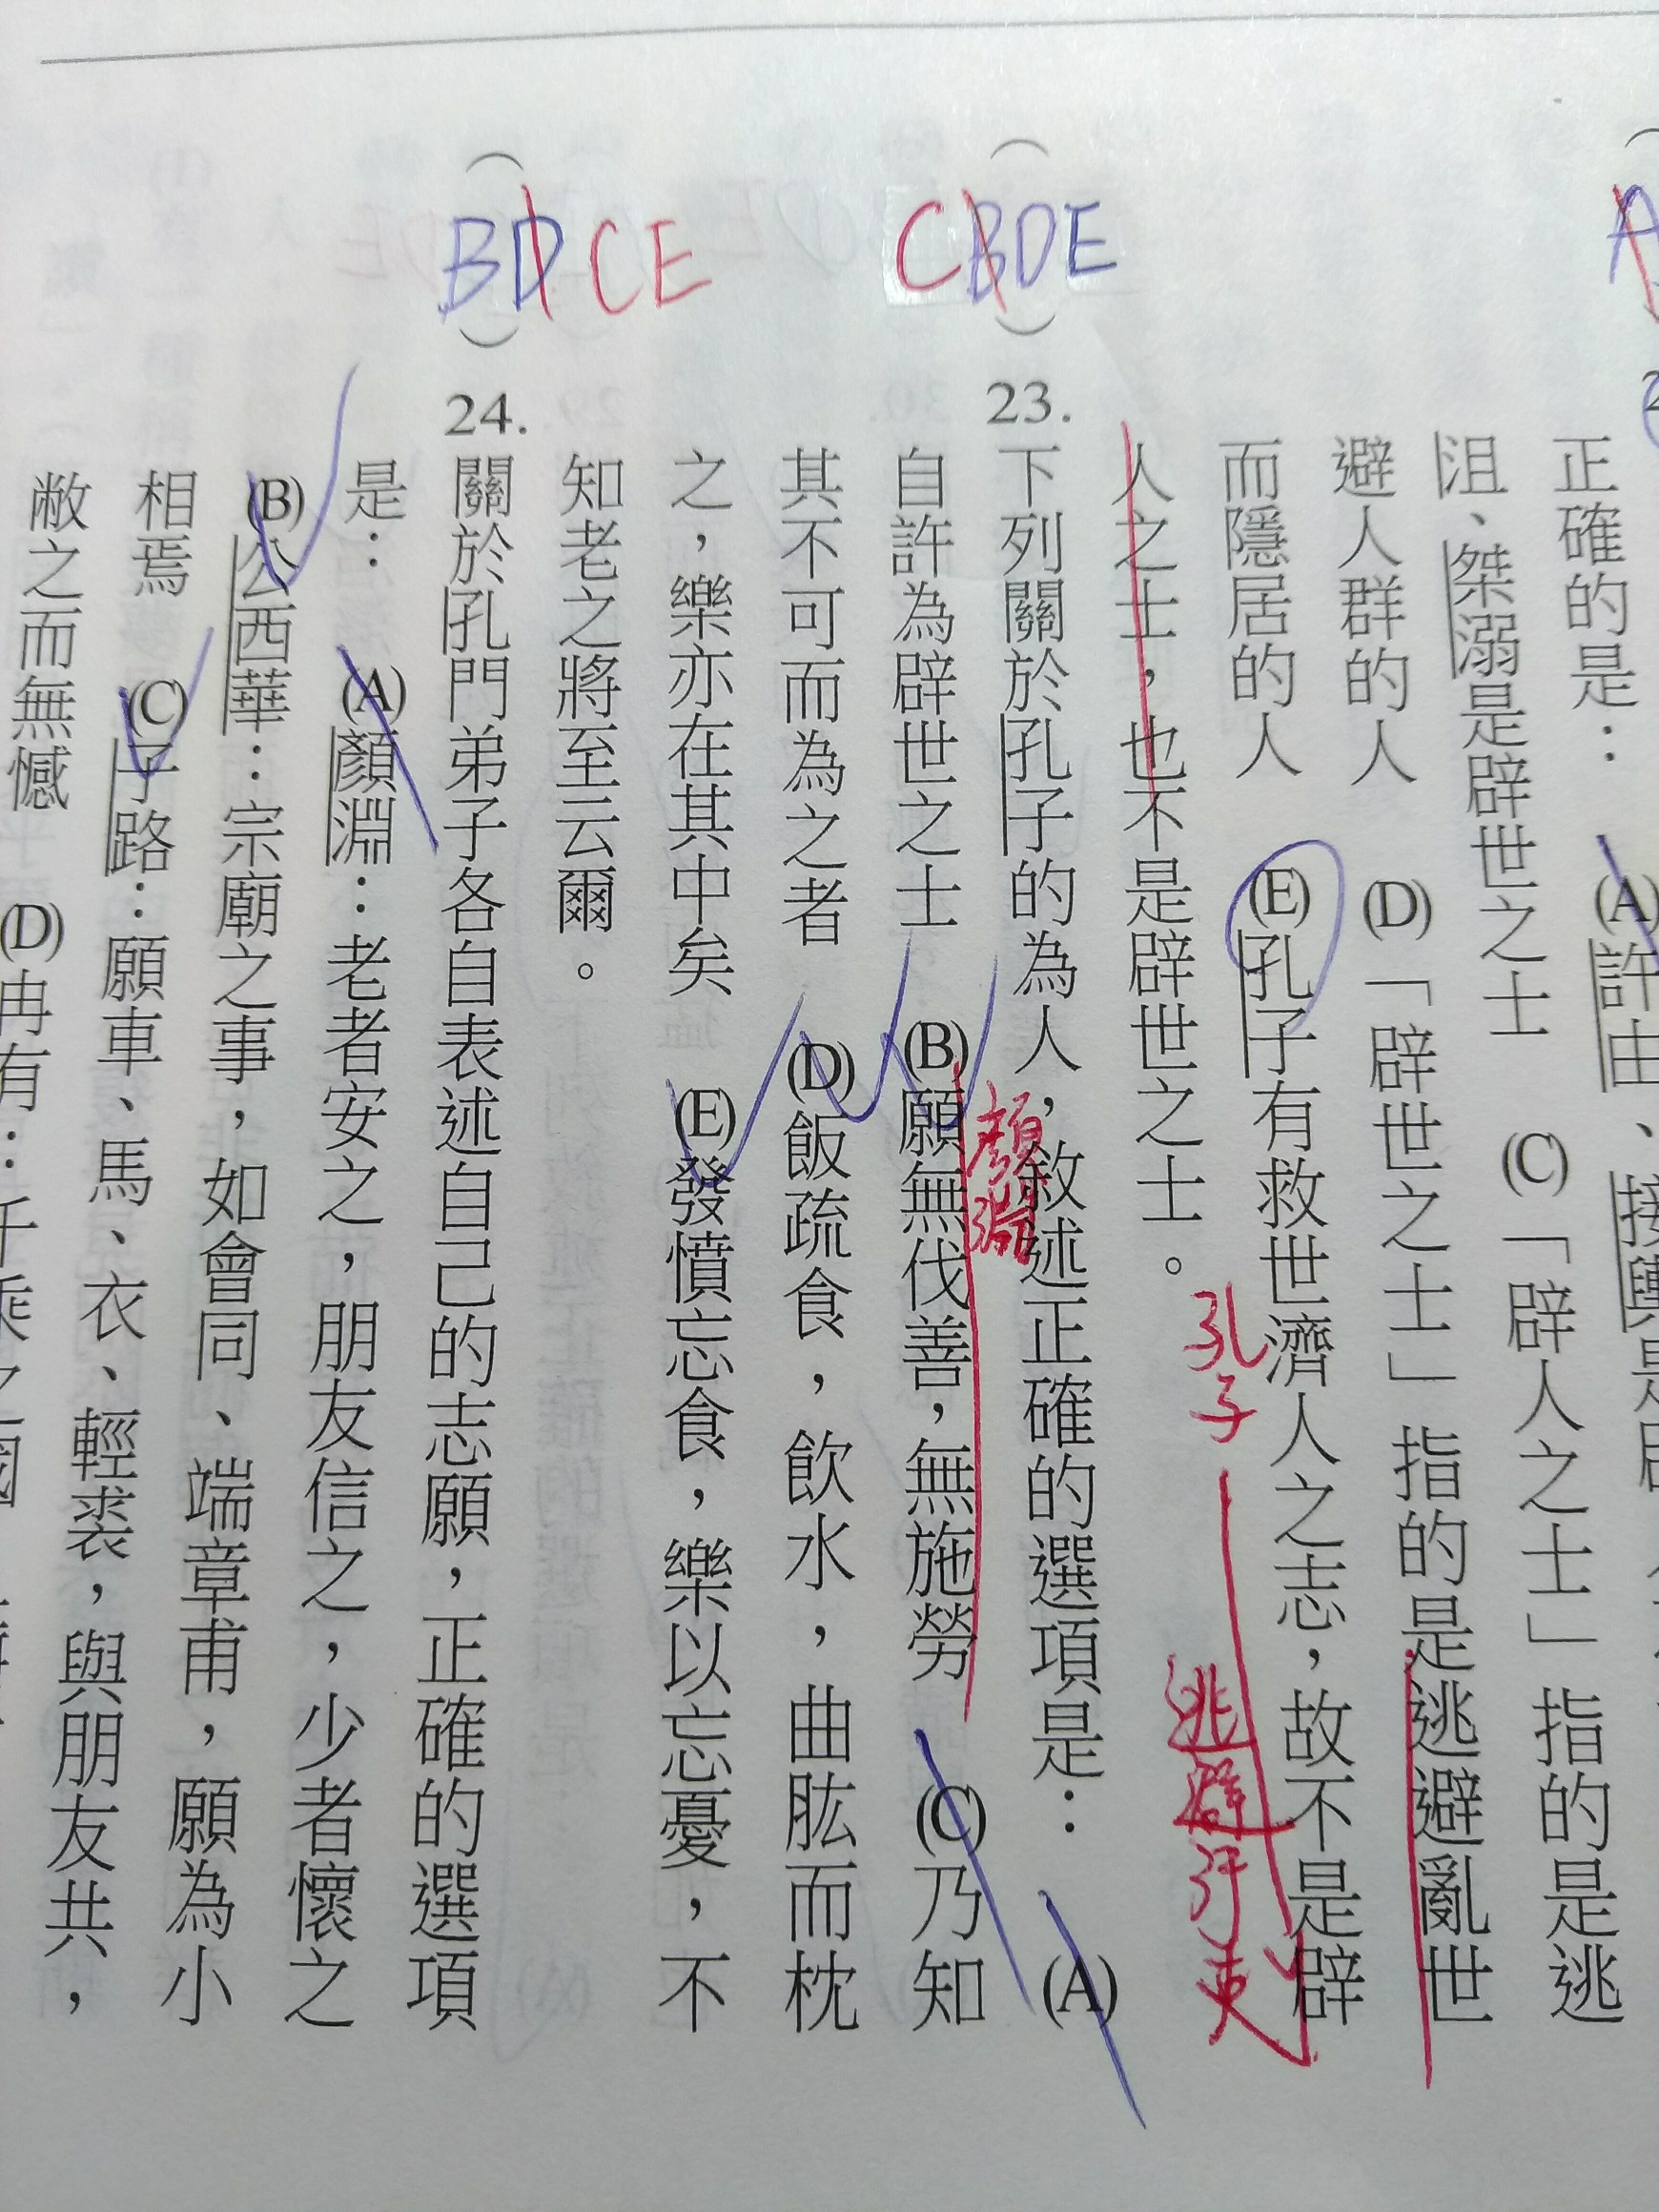 正確的是：　(A)許由、接輿是
沮、桀溺是辟世之士　(C)「辟人之士」指的是逃
避人群的人　(D)「辟世之士」指的是逃避亂世
而隱居的人　(E)孔子有救世濟人之志，故不是辟
人之士，也不是辟世之士。
孔子
逃避
CBDE
(　)23.下列關於孔子的為人，敘述正確的選項是：　(A)
顏淵
自許為辟世之士　(B)願無伐善，無施勞　(C)乃知
其不可而為之者　(D)飯疏食，飲水，曲肱而枕
之，樂亦在其中矣　(E)發憤忘食，樂以忘憂，不
知老之將至云爾。
BDCE
(　)24.關於孔門弟子各自表述自己的志願，正確的選項
是：　(A)顏淵：老者安之，朋友信之，少者懷之
(B)公西華：宗廟之事，如會同、端章甫，願為小
相焉　(C)子路：願車、馬、衣、輕裘，與朋友共，
敝之而無憾　(D)冉有：千乘之國